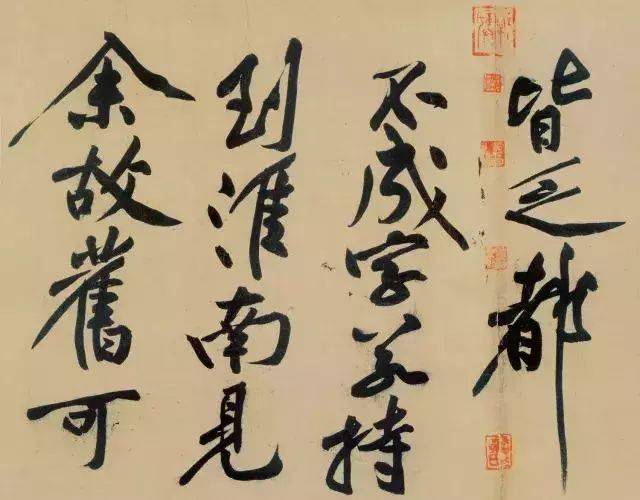 皆乏都
不成字若持
到淮南見
余故舊可